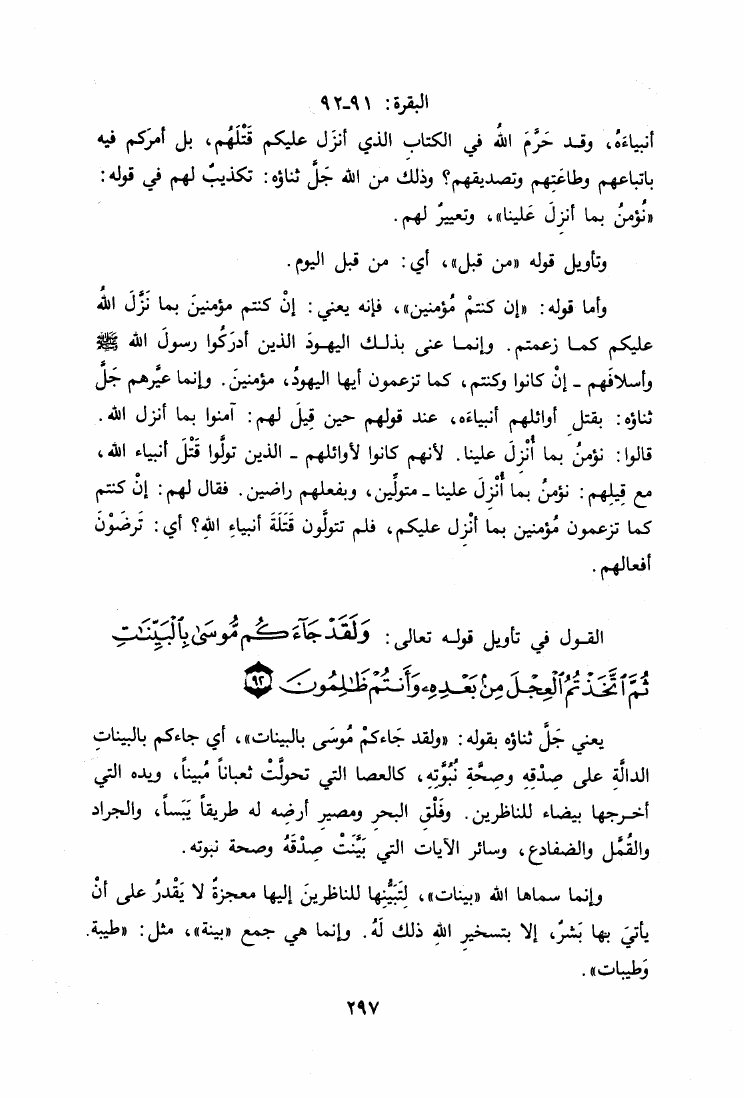 البقرة: ٩١-٩٢
أنبياءَهُ، وقد حَرَّمَ اللهُ في الكتابِ الذي أنزَل عليكم قَتْلَهُم، بل أمرَكم فيه
باتباعهم وطاعَتِهم وتصديقهم؟ وذلك من الله جَلَّ ثناؤه: تكذيبٌ لهم في قوله:
«نُؤمنُ بما أنزِلَ عَلينا»، وتعييرٌ لهم.
وتأويل قوله «من قبل»، أي: من قبل اليوم.
وأما قوله: «إن كنتمْ مُؤمنين»، فإنه يعني: إنْ كنتم مؤمنينَ بما نَزَّلَ اللهُ
عليكم كما زعمتم. وإنما عنى بذلك اليهودَ الذين أدرَكُوا رسولَ الله ﷺ
وأسلافَهم - إنْ كانوا وكنتم، كما تزعمون أيها اليهودُ، مؤمنينَ. وإنما عيَّرهم جَلَّ
ثناؤه: بقتلِ أوائلهم أنبياءَه، عند قولهم حين قِيلَ لهم: آمنوا بما أنزل الله.
قالوا: نؤمنُ بما أُنْزِلَ علينا. لأنهم كانوا لأوائلهم - الذين تولَّوا قَتْلَ أنبياء الله،
مع قِيلِهم: نؤمنُ بما أُنْزِلَ علينا - متولِّين، وبفعلهم راضين. فقال لهم: إنْ كنتم
كما تزعمون مُؤمنين بما أنْزِل عليكم، فلم تتولَّون قَتَلَةَ أنبياءِ اللهِ؟ أي: تَرضَوْنَ
أفعالهم.
القول في تأويل قوله تعالى: وَلَقَدْ جَآءَكُم مُّوسَىٰ بِٱلْبَيِّنَٰتِ
ثُمَّ ٱتَّخَذْتُمُ ٱلْعِجْلَ مِنۢ بَعْدِهِۦ وَأَنتُمْ ظَٰلِمُونَ ٩٢
يعني جَلَّ ثناؤه بقوله: «ولقد جَاءكمْ مُوسَى بالبينات»، أي جاءكم بالبيناتِ
الدالَّةِ على صِدْقِهِ وصِحَّةِ نُبُوَّتِهِ، كالعصا التي تحولَّتْ ثعباناً مُبيناً، ويده التي
أخرجها بيضاء للناظرين. وفَلْقِ البحرِ ومصيرِ أرضِه له طريقاً يَبَساً، والجراد
والقُمَّل والضفادع، وسائر الآيات التي بَيَّنَتْ صِدْقَهُ وصحة نبوته.
وإنما سماها الله «بينات»، لِتَبَيُّنِها للناظرينَ إليها معجزةٌ لا يَقْدرُ على أنْ
يأتيَ بها بَشرٌ، إلا بتسخيرِ اللهِ ذلك لَهُ. وإنما هي جمع «بينة»، مثل: «طيبة.
وَطيبات».
٢٩٧